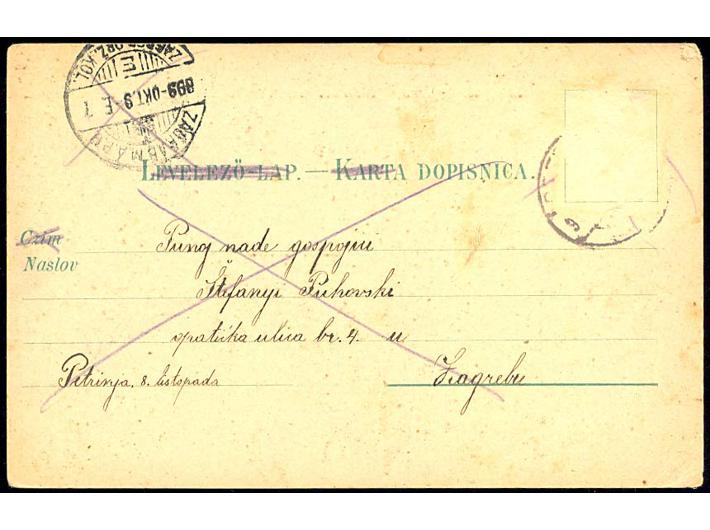 ZÁGRÁB M.Á.P.U.
899 OKT. 9. E 7
ZAGREB DRZ. KOL.
LEVELEZŐ-LAP. — KARTA DOPISNICA.
Czím
Naslov
Pung nade gospojni
Štefanyi Puhovski
opatička ulica br. 4. u
Zagrebu
Petrinja, 8. listopada